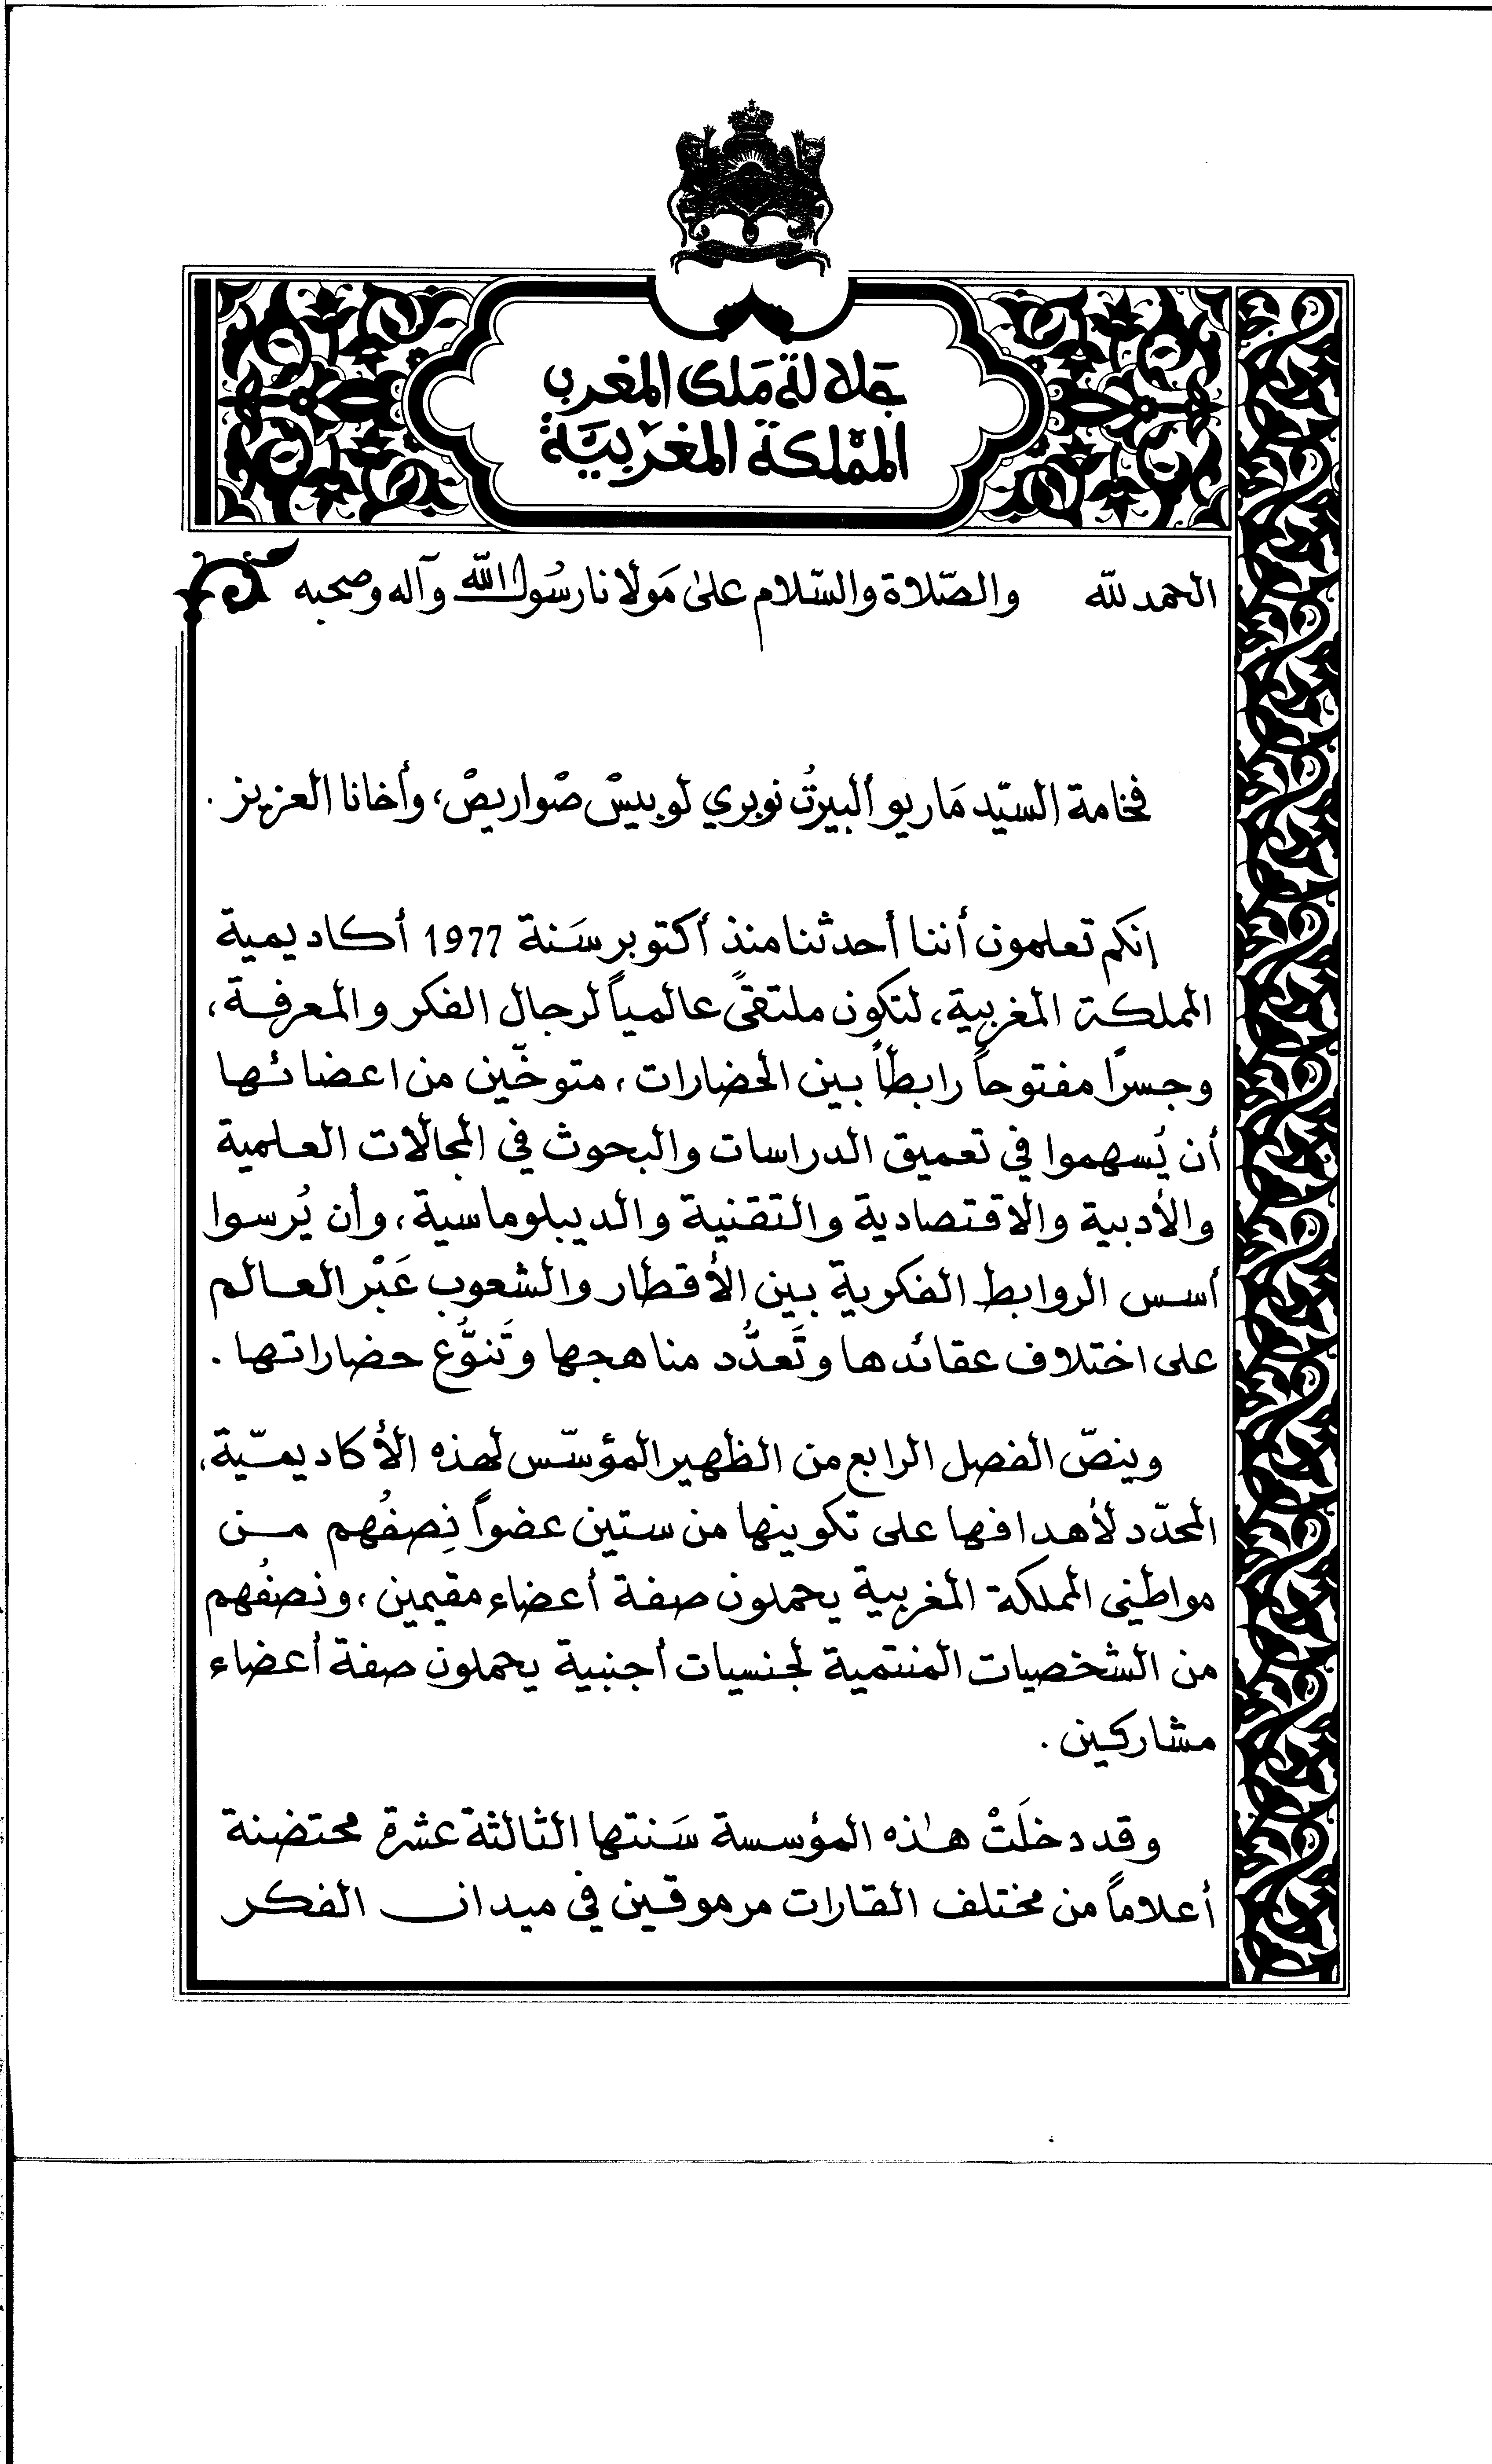 جَلالة مَلك المغرب
المَمْلكة المغرَبيَّة
الحمد لله والصّلاة والسّلام علىٰ مَولانا رسُول الله وآله وصحبه
فخامة السيّد مَاريو ألبيرتُ نوبري لوبيسْ صْواريصْ، وأخانا العزيز .
إنكم تعلمون أننا أحدثنا منذ أكتوبر سَنة 1977 أكاديمية
المملكة المغربية، لتكون ملتقىً عالمياً لرجال الفكر والمعرفة،
وجسراً مفتوحاً رابطاً بين الحضارات ، متوخّين من اعضائها
أن يُسهموا في تعميق الدراسات والبحوث في المجالات العلمية
والأدبية والاقتصادية والتقنية والديبلوماسية، وأن يُرسوا
أسس الروابط الفكرية بين الأقطار والشعوب عَبْر العالم
على اختلاف عقائدها وتَعدُّد مناهجها وتَنوُّع حضاراتها .
وينصّ الفصل الرابع من الظهير المؤسّس لهذه الأكاديميّة،
المحدّد لأهدافها على تكوينها من ستين عضواً نِصفُهم من
مواطني المملكة المغربية يحملون صفة أعضاء مقيمين، ونصفُهم
من الشخصيات المنتمية لجنسيات أجنبية يحملون صفة أعضاء
مشاركين .
وقد دخلَتْ هٰذه المؤسسة سَنتها الثالثة عشرة محتضنة
أعلاماً من مختلف القارات مرموقين في ميدان الفكر